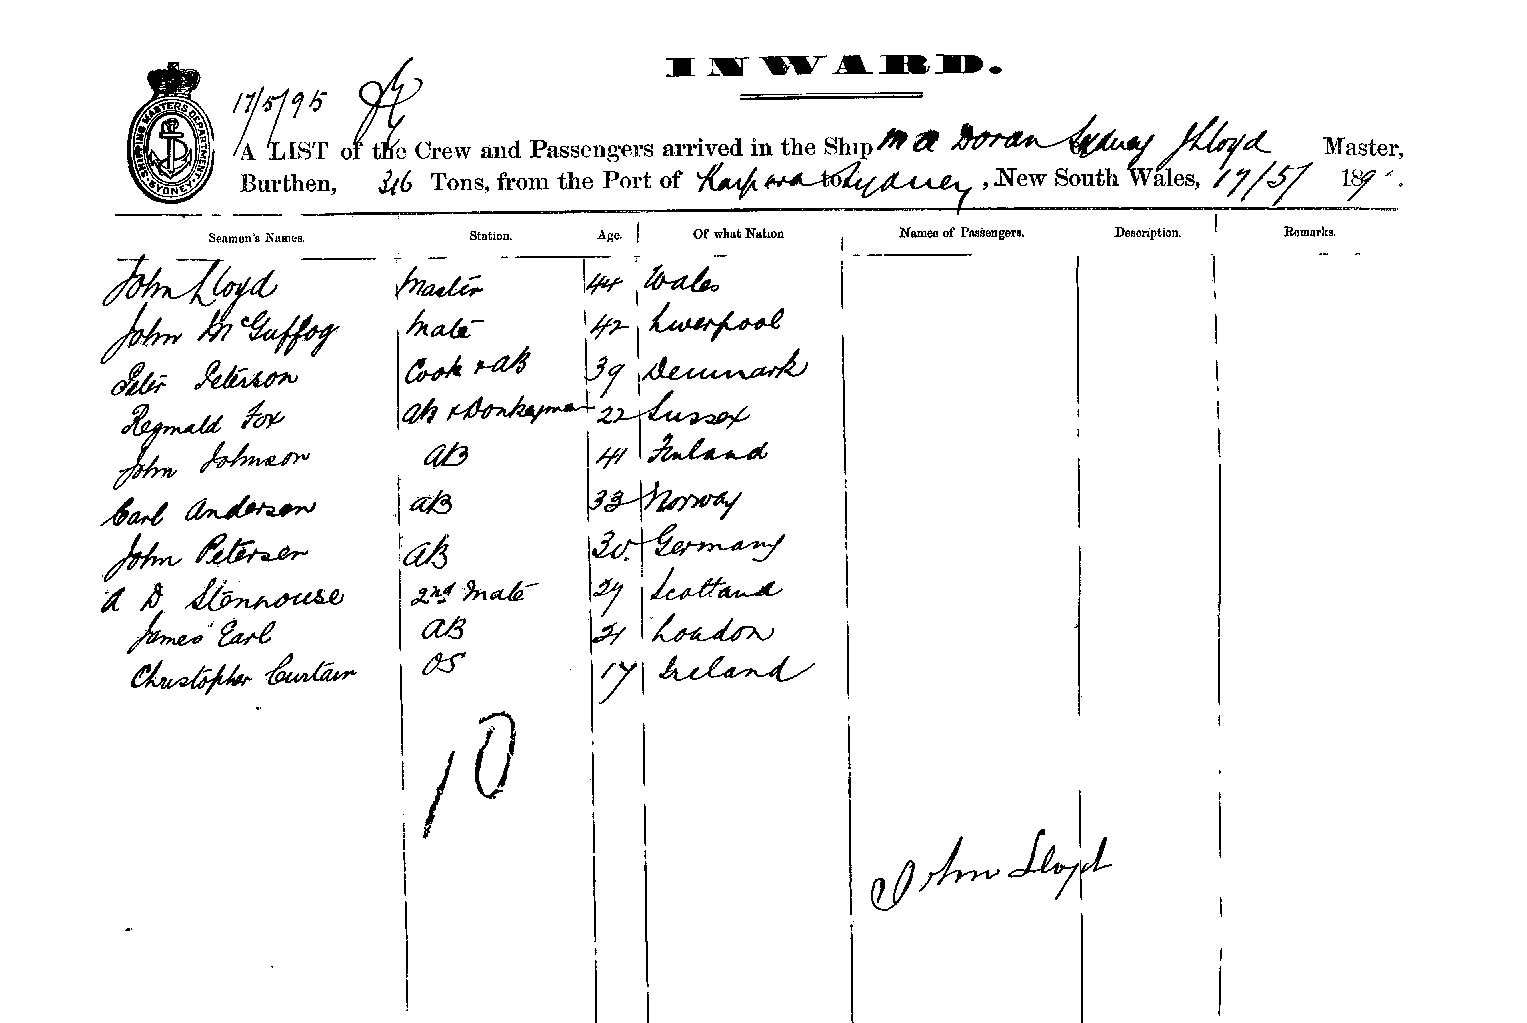 INWARD.
SHIPPING MASTERS DEPARTMENT SYDNEY
17/5/95
A LIST of the Crew and Passengers arrived in the Ship M A Doran Sydney J Lloyd Master,
Burthen, Tons, from the Port of to Sydney, New South Wales, 17/5/ 189
Seamen's Names. Station. Age. Of what Nation Names of Passengers. Description. Remarks.
John Lloyd Master 44 Wales
John McGuffog Mate 42 Liverpool
Peter Peterson Cook & AB 39 Denmark
Reginald Fox AB & Donkeyman 22 Sussex
John Johnson AB 41 Finland
Carl Andersen AB 33 Norway
John Petersen AB 30 Germany
A D Stenhouse 2nd Mate 29 Scotland
James Earl AB 21 London
Christopher Curtain OS 17 Ireland
10
John Lloyd